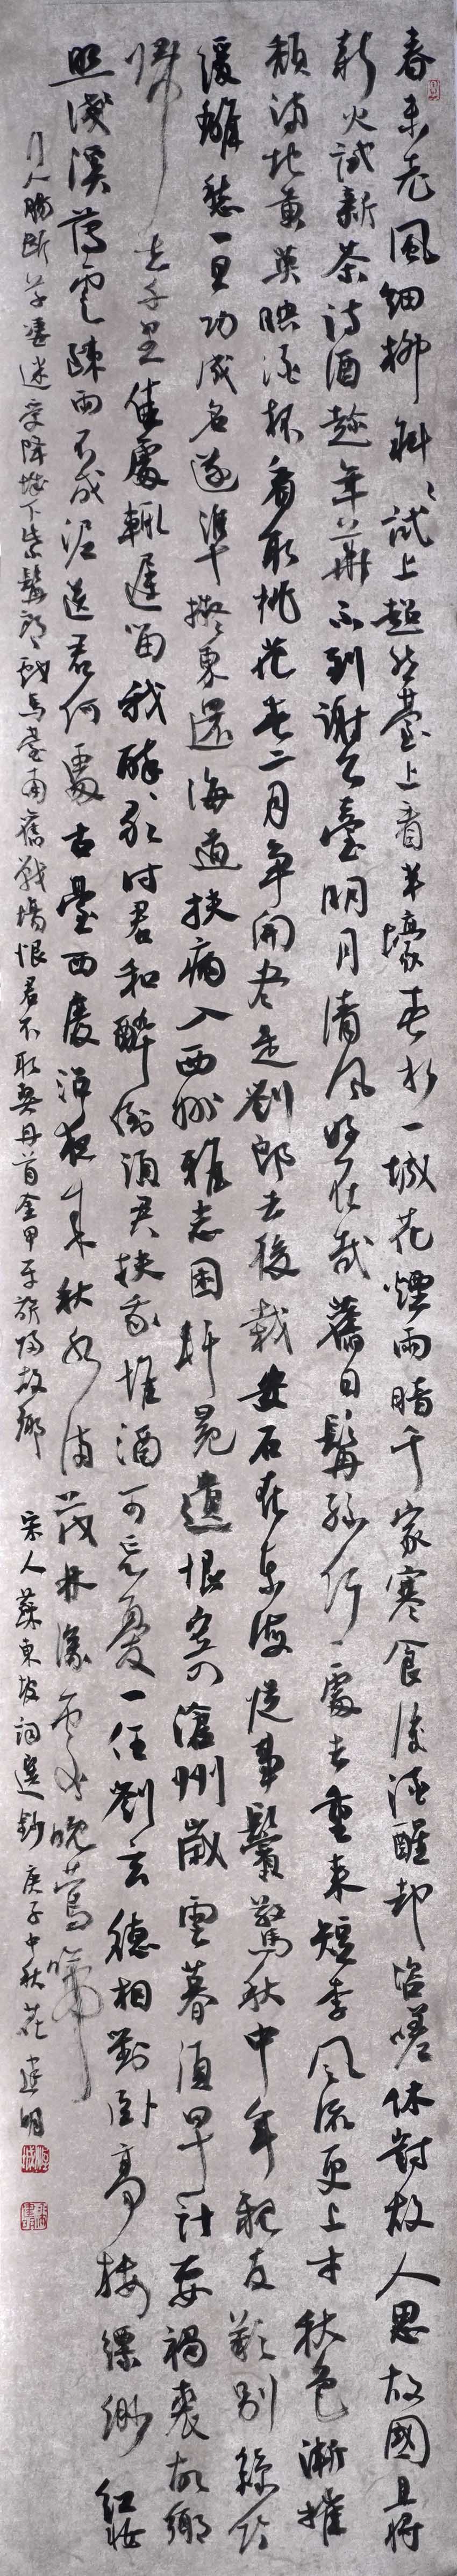 春未老風細柳斜〻試上超然臺上看半壕春水一城花煙雨暗千家寒食後酒醒却咨嗟休對故人思故國且將
新火試新茶詩酒趁年華不到謝公臺明月清風好在哉舊日髯孫何處去重來短李風流更上才秋色漸摧
頹滿地黃英映酒杯看取桃花春二月爭開盡是劉郎去後栽安石在東海從事鬢驚秋中年親友難別絲竹
緩離愁一旦功成名遂準擬東還海道扶病入西州雅志困軒冕遺恨寄滄洲歲雲暮須早計要褐裘故鄉
歸去千里佳處輒遲留我醉歌時君和醉倒須君扶我惟酒可忘憂一任劉玄德相對臥高樓縹緲紅妝
照淺溪薄雲疎雨不成泥送君何處古臺西廢沼夜來秋水滿茂林深處晚鶯啼
行人腸斷草淒迷受降城下紫髯郎戲馬臺南舊戰場恨君不取契丹首金甲牙旗歸故鄉
宋人蘇東坡詞選鈔庚子中秋花建明